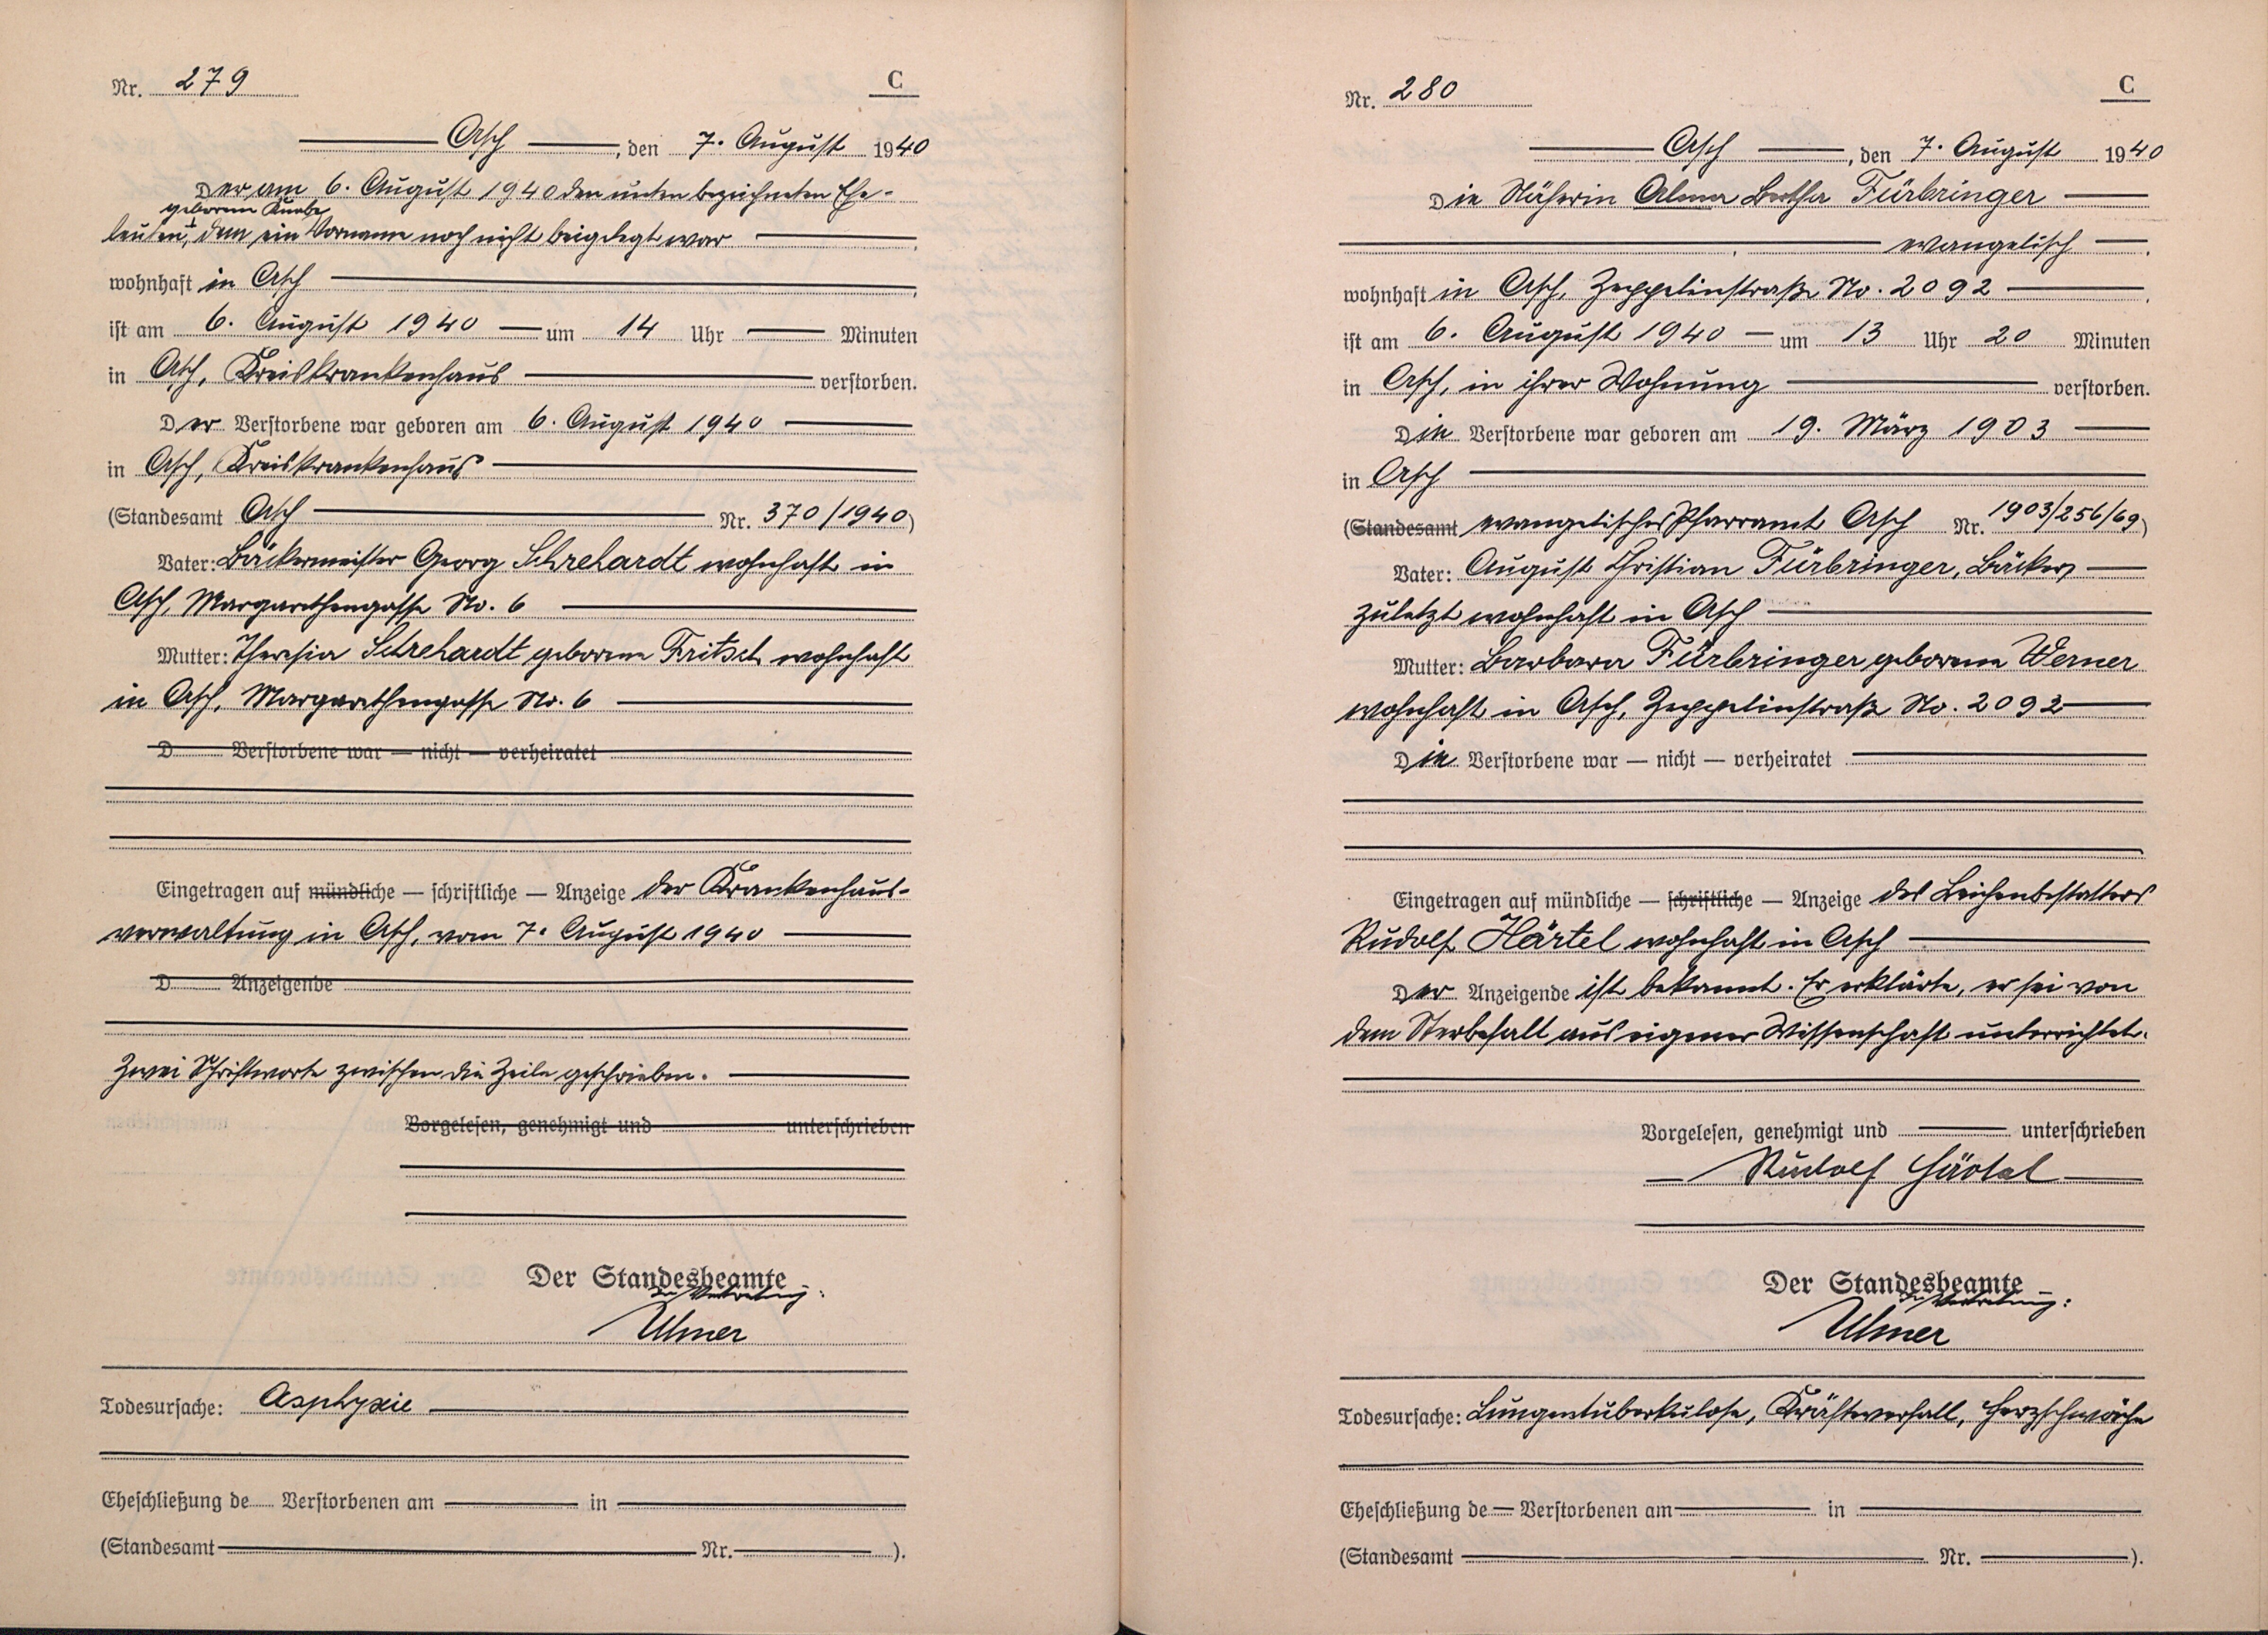 Nr. 279
C
Asch, den 7. August 1940
Der am 6. August 1940 den unten bezeichneten Ehe-
geborene Knabe
leuten, dem ein Vorname noch nicht beigelegt war
wohnhaft in Asch
ist am 6. August 1940 um 14 Uhr Minuten
in Asch, Kreiskrankenhaus verstorben.
Der Verstorbene war geboren am 6. August 1940
in Asch, Kreiskrankenhaus
(Standesamt Asch Nr. 370/1940)
Vater: Bäckermeister Georg Schrehardt wohnhaft in
Asch, Margarethengasse No. 6
Mutter: Theresia Schrehardt geborene Fritsch wohnhaft
in Asch, Margarethengasse No. 6
D Verstorbene war — nicht — verheiratet
Eingetragen auf mündliche — schriftliche — Anzeige der Krankenhaus-
verwaltung in Asch, vom 7. August 1940
D Anzeigende
Zwei Schriftworte zwischen die Zeile geschrieben.
Vorgelesen, genehmigt und unterschrieben
Der Standesbeamte
In Vertretung:
Ulmer
Todesursache: Asphyxie
Eheschließung de Verstorbenen am in
(Standesamt Nr. ).
Nr. 280
C
Asch, den 7. August 1940
Die Näherin Alma Bertha Fürbringer
evangelisch
wohnhaft in Asch, Zeppelinstraße No. 2092
ist am 6. August 1940 um 13 Uhr 20 Minuten
in Asch, in ihrer Wohnung verstorben.
Die Verstorbene war geboren am 19. März 1903
in Asch
(Standesamt evangelisches Pfarramt Asch Nr. 1903/256/69)
Vater: August Christian Fürbringer, Bäcker,
zuletzt wohnhaft in Asch
Mutter: Barbara Fürbringer geborene Werner
wohnhaft in Asch, Zeppelinstraße No. 2092
Die Verstorbene war — nicht — verheiratet
Eingetragen auf mündliche — schriftliche — Anzeige des Leichenbestatters
Rudolf Härtel wohnhaft in Asch
Der Anzeigende ist bekannt. Er erklärte, er sei von
dem Sterbefall aus eigener Wissenschaft unterrichtet.
Vorgelesen, genehmigt und unterschrieben
Rudolf Härtel
Der Standesbeamte
In Vertretung:
Ulmer
Todesursache: Lungentuberkulose, Kräfteverfall, Herzschwäche
Eheschließung de Verstorbenen am in
(Standesamt Nr. ).